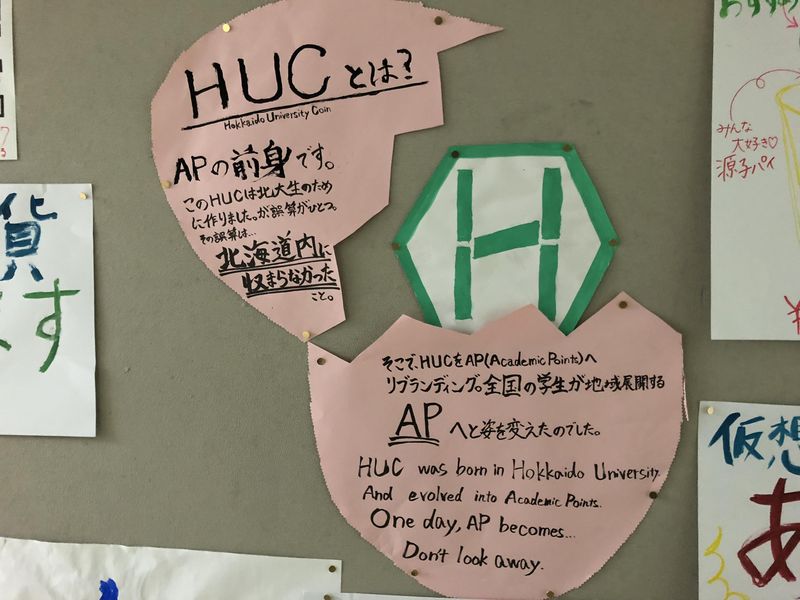 HUCとは?
Hokkaido University Coin
APの前身です。
このHUCは北大生のため
に作りました。が誤算がひとつ。
その誤算は…
北海道内に
収まらなかった
こと。
H
そこで、HUCをAP(Academic Points)へ
リブランディング。全国の学生が地域展開する
AP へと姿を変えたのでした。
HUC was born in Hokkaido University.
And evolved into Academic Points.
One day, AP becomes...
Don't look away.
貨
ます
みんな
大好き♡
源子パイ
¥
仮想
あ